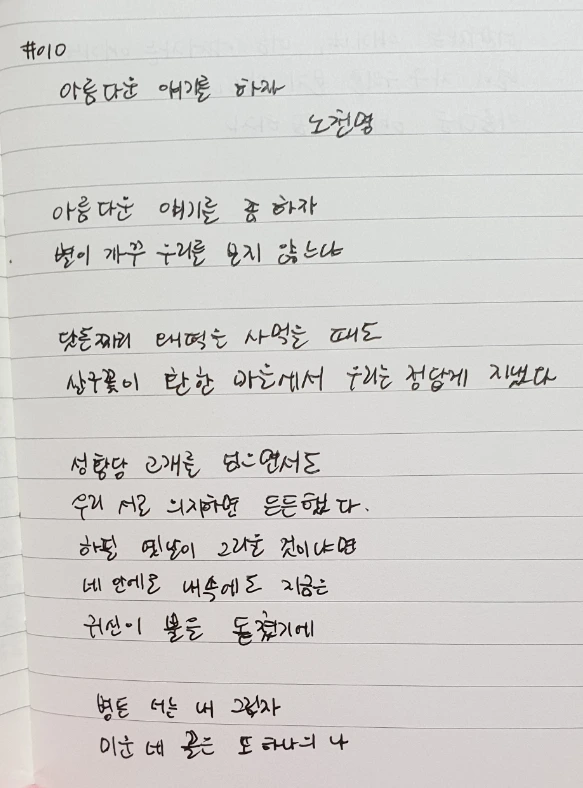 #010
아름다운 얘기를 하자
노천명
아름다운 얘기를 좀 하자
별이 자꾸 우리를 보지 않느냐
닷돈짜리 왜떡을 사먹을 때도
살구꽃이 환한 마을에서 우리는 정답게 지냈다
성황당 고개를 넘으면서도
우리 서로 의지하면 든든했다.
하필 옛날이 그리울 것이냐만
네 안에도 내속에도 지금은
귀신이 뿔을 돋쳤기에
병든 너는 내 그림자
미운 네 꼴은 또 하나의 나